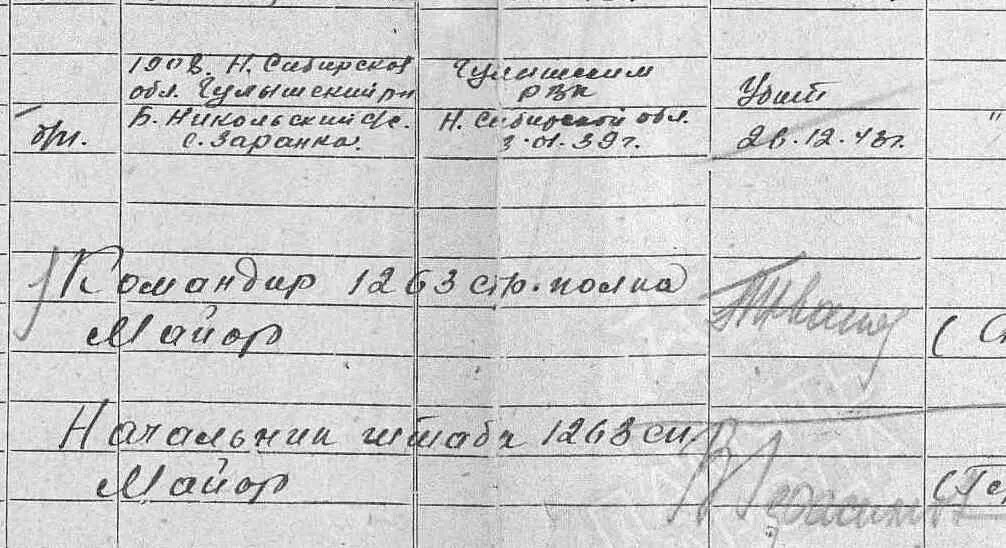 1908. Н. Сибирской
обл. Чулышский рн
Б. Никольский с/с.
с. Заранка.
Чулышским
РВК
Н. Сибирской обл.
3.01.39 г.
Убит
26.12.43 г.
"
Командир 1263 стр. полка
Майор
(
Начальник штаба 1263 сп
Майор
(Ге